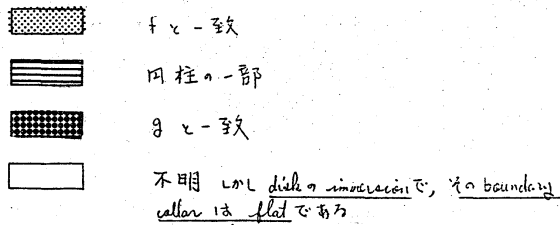 fと一致
円柱の一部
gと一致
不明 しかし diskのimmersionで, そのboundary
collar は flat である